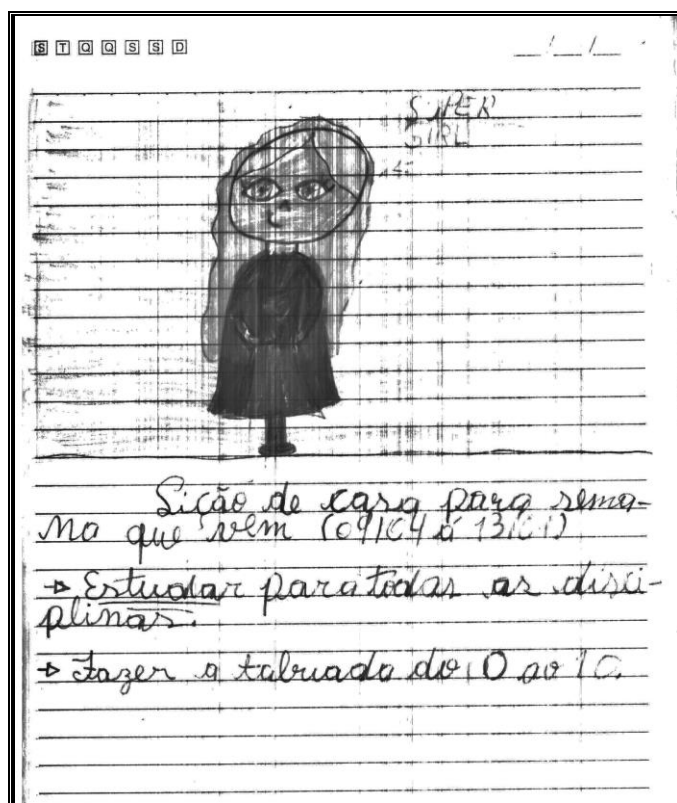 S T Q Q S S D
__/__/__
SUPER
GIRL
Lição de casa para sema-
na que vem (09/04 á 13/04)
→ Estudar para todas as disci-
plinas.
→ Fazer a tabuada do 0 ao 10.